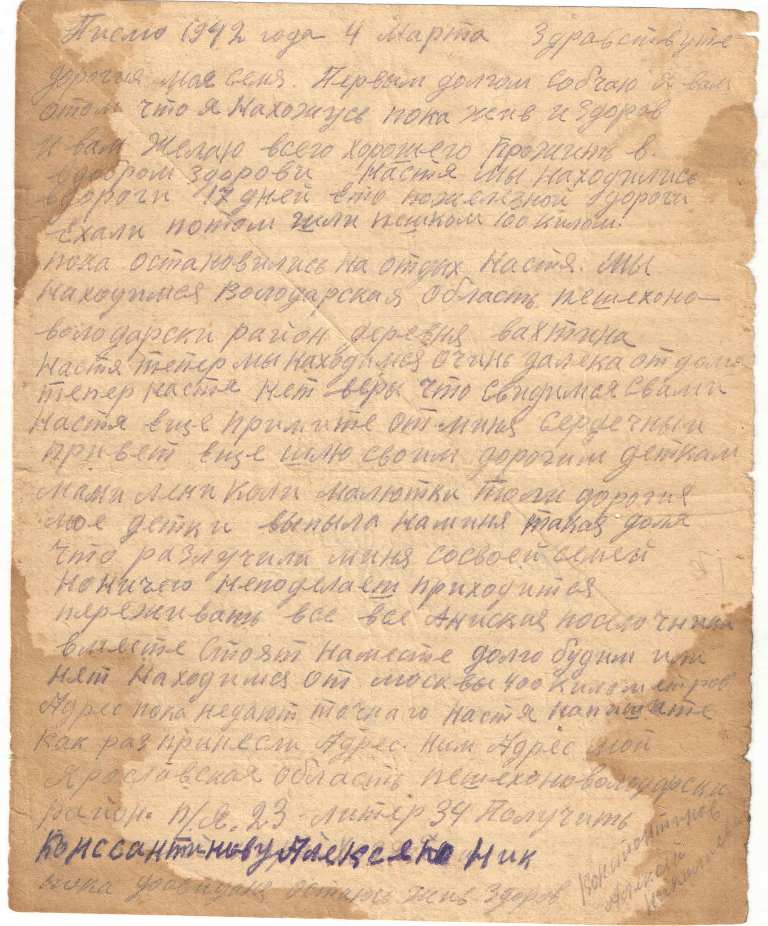 Писмо 1942 года 4 Марта Здравствуте
дорогия мая семя. Первым долгом собчаю я вам
отом что я Нахожусь пока жив и здоров
и вам Желаю всего хорошего Прожить в
добром здорови Настя мы находились
вдороги 17 дней ето пожелезной дороги
ехали потом шли пешком 100 килом.
пока остановились на отдых Настя. Мы
Находимся Володарская область пешехоно-
володарски район деревня вахтина
Настя тепер мы находимся очинь далека от
тепер Настя Нет веры что свидимся Свами
Настя еще примите от миня сердечный
привет еще шлю своим дорогим деткам
Мани Лени Коли малютки Толи дорогия
мое детки выпыла на миня такая доля
Что разлучили миня сосвоей семей
но ничего неподелаеш приходится
переживать все все Аниская
вместе стоят наместе долго будим или
нет Находимся от москвы 400 километров
Адрес пока недают точнаго Настя напишите
как раз принесли Адрес. Адрес мой
Ярославская область пешехоноволодарски
район. п/я. 23 литер 34 Получить
Конссантинову Алексею Ник
пока досвидания остаюсь жив здоров
Константинов
Алексей